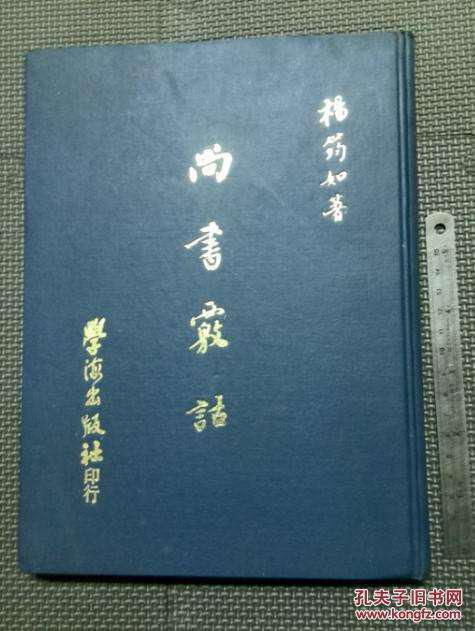 楊筠如著
尚書覈詁
學海出版社印行
孔夫子旧书网